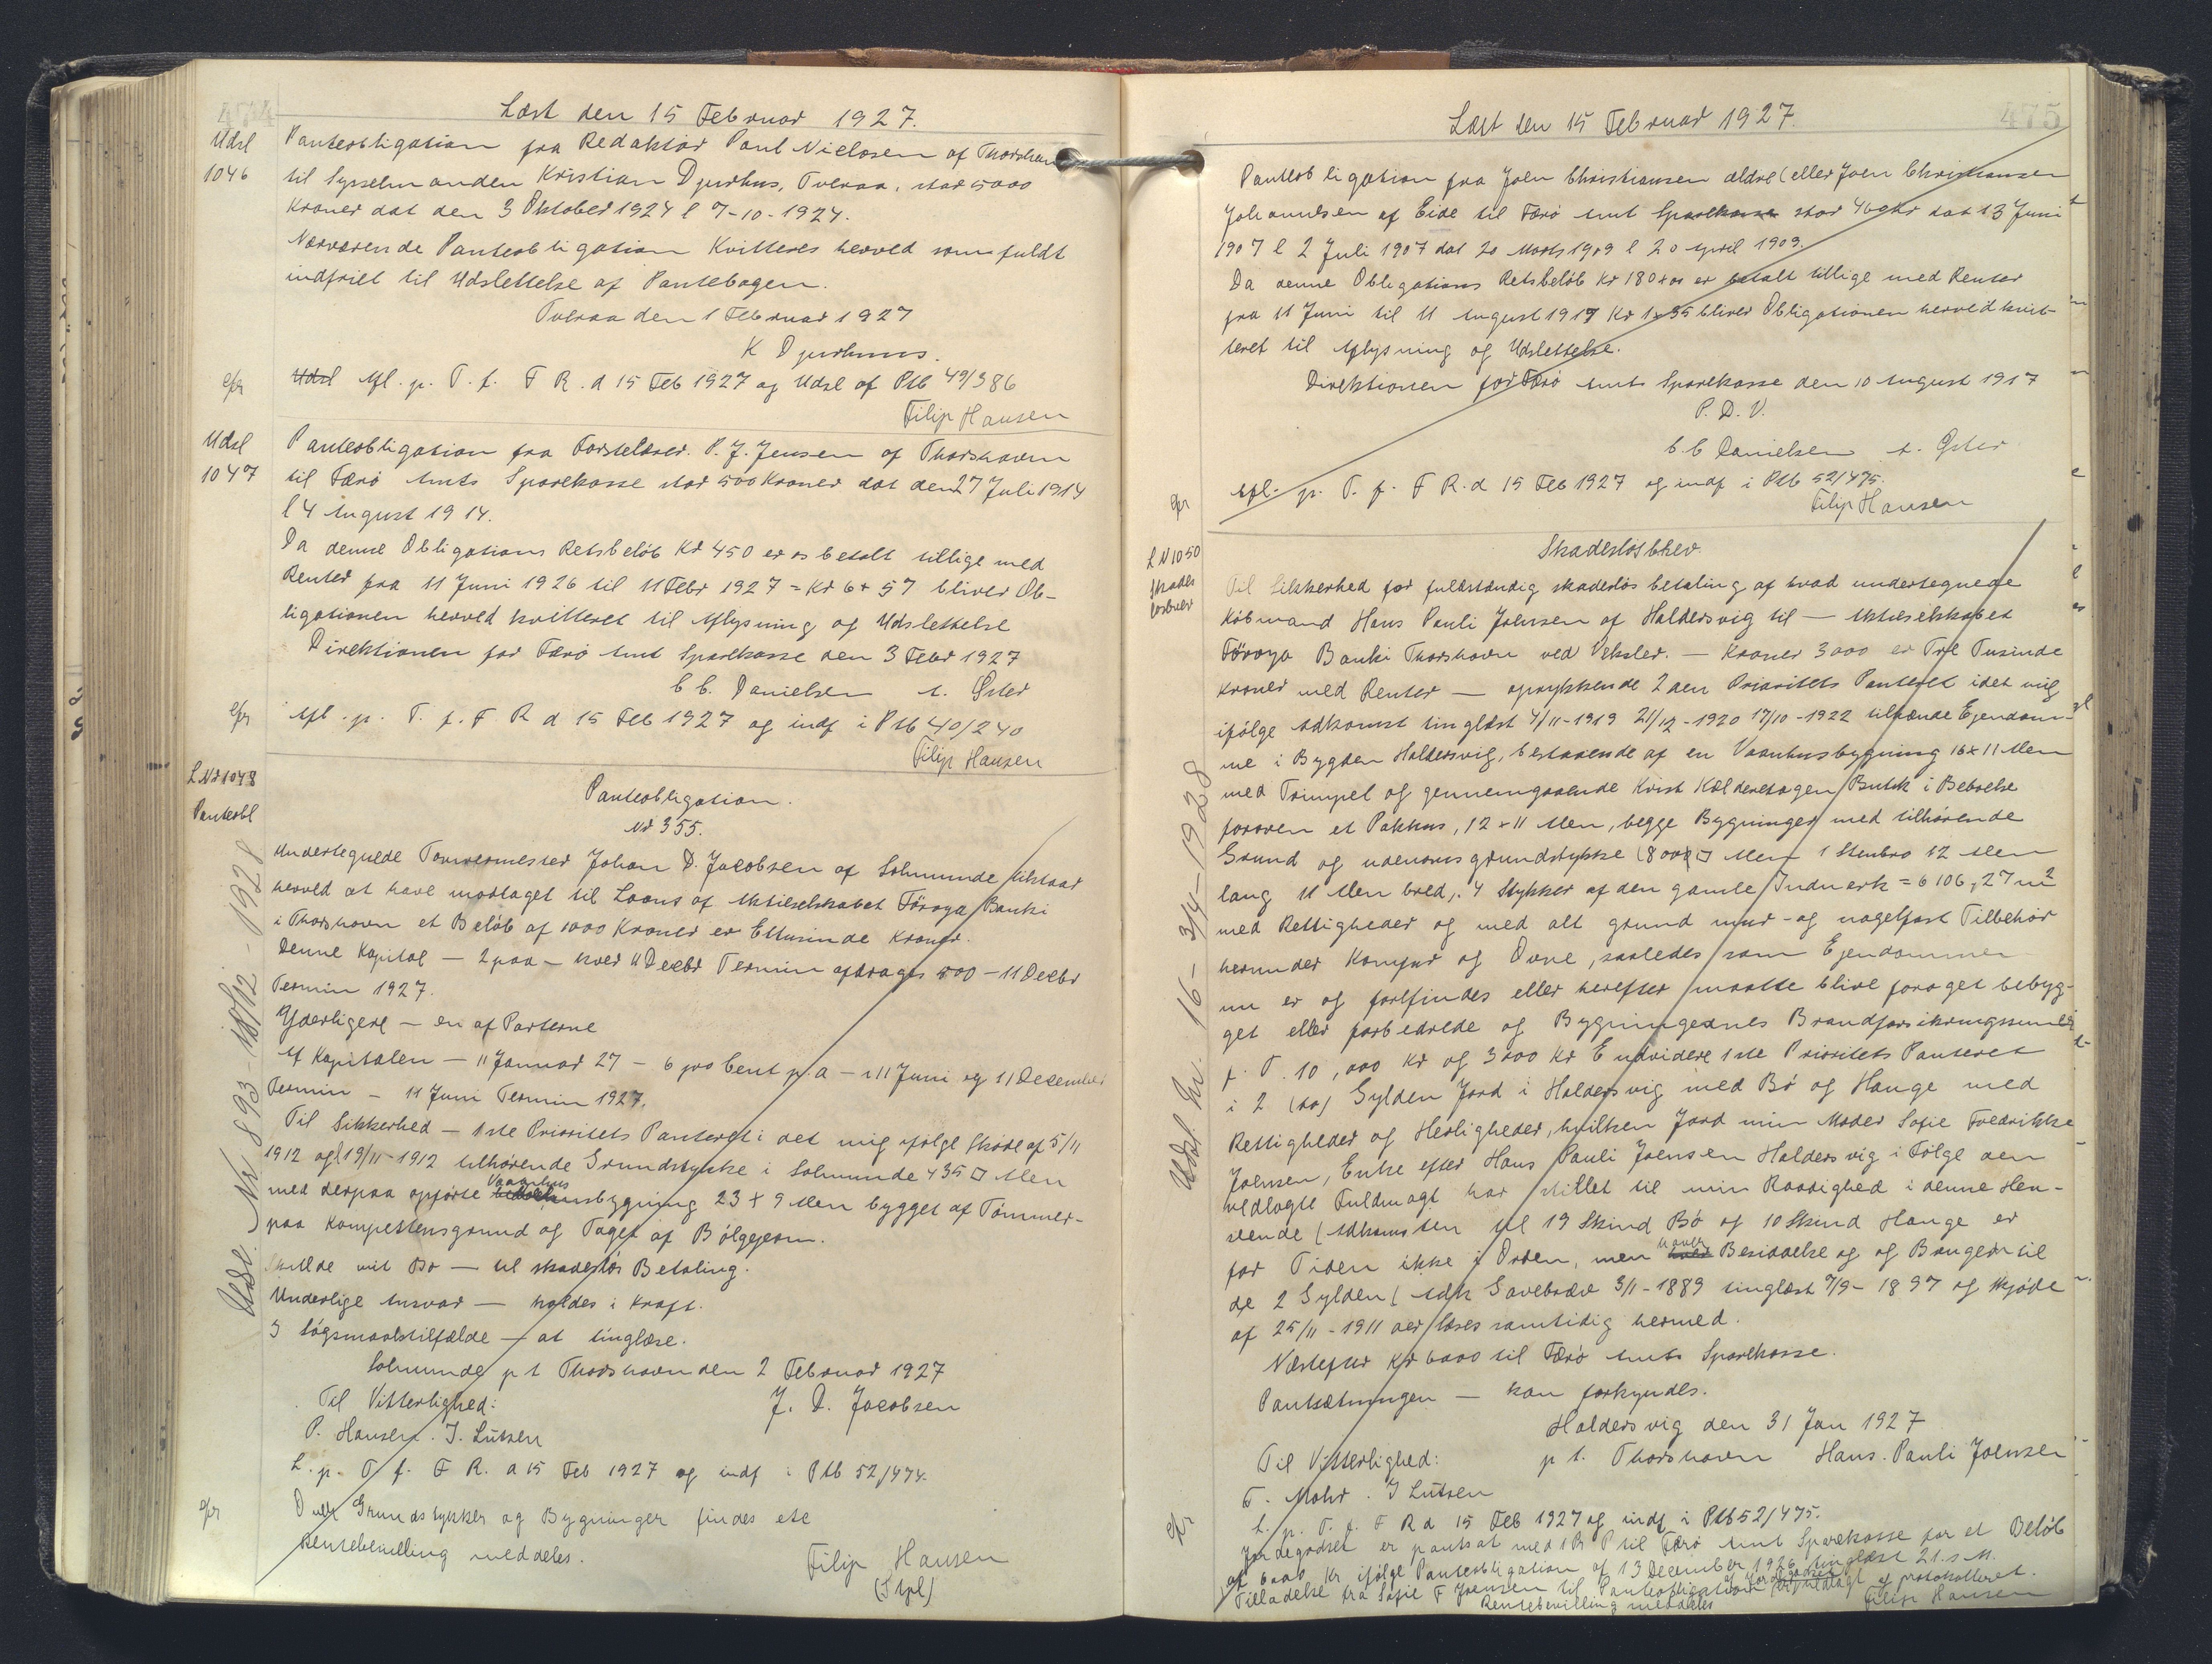 474
Læst den 15 Februar 1927.
Udsl
1046
Panteobligation fra Redaktør Poul Niclasen af Thorshavn
til Sysselmanden Kristian Djurhus, Tveraa, stor 5000
Kroner dat den 3 Oktober 1924 l 7-10-1924.
Nærværende Panteobligation Kvitteres herved som fuldt
indfriet til Udslettelse af Pantebogen.
Tveraa den 1 Februar 1927
K Djurhuus.
Udsl Afl. p. T. f. F R. d 15 Feb 1927 og Udsl af Ptb 49/386
Filip Hansen
Udsl
1047
Panteobligation fra Førstelærer. P. J. Jensen af Thorshavn
til Færø Amts Sparekasse stor 500 Kroner dat den 27 Juli 1914
l 4 August 1914.
Da denne Obligations Retsbeløb Kr 450 er os betalt tillige med
Renter fra 11 Juni 1926 til 11 Febr 1927 = Kr 6+57 bliver Ob-
ligationen herved kvitteret til Aflysning og Udslettelse
Direktionen for Færø Amt Sparekasse den 3 Febr 1927
C C. Danielsen A. Øster
Afl. p. T. f. F R d 15 Feb 1927 og indf i Ptb 40/240
Filip Hansen
L Nr 1048
Panteobl
Panteobligation.
Nr 355.
Undertegnede Tømrermester Johan D. Jacobsen af Solmunde tilstaar
herved at have modtaget til Laans af Aktieselskabet Föroya Banki
i Thorshavn et Beløb af 1000 Kroner er Ettusinde Kroner.
Denne Kapital — 2 paa — hver 11 Decbr Termin afdrages 500 — 11 Decbr
Termin 1927.
Yderligere — en af Parterne
Af Kapitalen — 11 Januar 27 — 6 pro Cent p. a — i 11 Juni og 11 December
Termin — 11 Juni Termin 1927.
Til Sikkerhed — 1ste Prioritets Panteret i det mig ifølge Skøde af 5/11
1912 og l 19/11-1912 tilhørende Grundstykke i Solmunde 435 □ Alen
med derpaa opførte Vaanhusbygning 23 + 9 Alen bygget af Tømmer-
paa Kampestensgrund og Taget af Bølgejern.
Skulde mit Bo — til skadesløs Betaling.
Underlige Ansvar — holdes i Kraft.
I Søgsmaalstilfælde — at tinglæse.
Solmunde p t Thorshavn den 2 Februar 1927
Til Vitterlighed: J. D. Jacobsen
P. Hansen. J. Lützen
L. p. T. f. F R. d 15 Feb 1927 og indf i Ptb 52/474.
Over Grundstykker og Bygninger findes ete
Rentebevilling meddeles.
Filip Hansen
(Stpl)
Udsl. Nr. 893 - 18/12 - 1928
475
Læst den 15 Februar 1927.
Panteobligation fra Joen Christiansen ældre (eller Joen Christiansen
Johannesen af Eide til Færø Amt Sparekasse stor 460 Kr dat 13 Juni
1907 l 2 Juli 1907 dat 20 Marts 1909 l 20 April 1909.
Da denne Obligations Retsbeløb Kr 180+00 er betalt tillige med Renter
fra 11 Juni til 11 August 1917 Kr 1+35 bliver Obligationen herved kvit-
teret til Aflysning og Udslettelse.
Direktionen for Færø Amts Sparekasse den 10 August 1917
P. D. V.
C. C Danielsen A. Øster
Afl. p. T. f. F R. d 15 Feb 1927 og indf i Ptb 52/475.
Filip Hansen
L N 1050
Skades
løsbrev
Skadesløsbrev.
Til Sikkerhed for fuldstændig skadesløs betaling af hvad undertegnede
Købmand Hans Pauli Joensen af Haldersvig til — Aktieselskabet
Föroya Banki Thorshavn ved Veksler. — Kroner 3000 er Tre Tusinde
Kroner med Renter — oprykkende 2den Prioritets Panteret i det mig
ifølge Adkomst tinglæst 4/11-1919 21/12-1920 17/10-1922 tilhørende Ejendom-
me i Bygden Haldersvig, bestaaende af en Vaanhusbygning 16 x 11 Alen
med Trimpel og gennemgaaende Kvist Kælderetagen Butik i Beboelse
foroven et Pakhus, 12 x 11 Alen, begge Bygninger med tilhørende
Grund og udenomsgrundstykke (800 □ Alen 1 Stenbro 12 Alen
lang 11 Alen bred, 4 Stykker af den gamle Indmerk = 6106,27 m2
med Rettigheder og med alt grund mur- og nagelfast Tilbehør
herunder Komfur og Ovne, saaledes som Ejendommen
nu er og forefindes eller herefter maatte blive forøget bebyg-
get eller forbedrede og Bygningernes Brandforsikringssum
f. T. 10,000 Kr og 3000 Kr Endvidere 1ste Prioritets Panteret
i 2 (to) Gylden Jord i Haldersvig med Bø og Hauge med
Rettigheder og Herligheder, hvilken Jord min Moder Sofie Fredrikke
Joensen, Enke efter Hans Pauli Joensen Haldersvig i Følge den
vedlagte Fuldmagt har stillet til min Raadighed i denne Hen-
seende (Adkomsten til 19 Skind Bø og 10 Skind Hauge er
for Tiden ikke i Orden, men haves Besiddelse og af Brugen til
de 2 Gylden (Adk Gavebrev 3/11-1889 tinglæst 7/9-1897 og Skjøde
af 25/11-1911 der læses samtidig hermed.
Næstefter Kr 6000 til Færø Amts Sparekasse.
Pantsætningen — kan forkyndes.
Haldersvig den 31 Jan 1927
Til Vitterlighed: p t. Thorshavn Hans. Pauli Joensen
T. Mohr. J Lützen
L. p. T. f. F R d 15 Feb 1927 og indf i Ptb 52/475.
Jordegodset er pantsat med 1 P til Færø Amt Sparekasse for et Beløb
af 6000 Kr ifølge Panteobligation af 13 December 1926 tinglæst 21. s M.
Tilladelse fra Sofie F Joensen til Panteobligation vedlagt og protokolleret.
Rentebevilling meddeles
Filip Hansen
Udsl. Nr. 16 - 3/4 - 1928